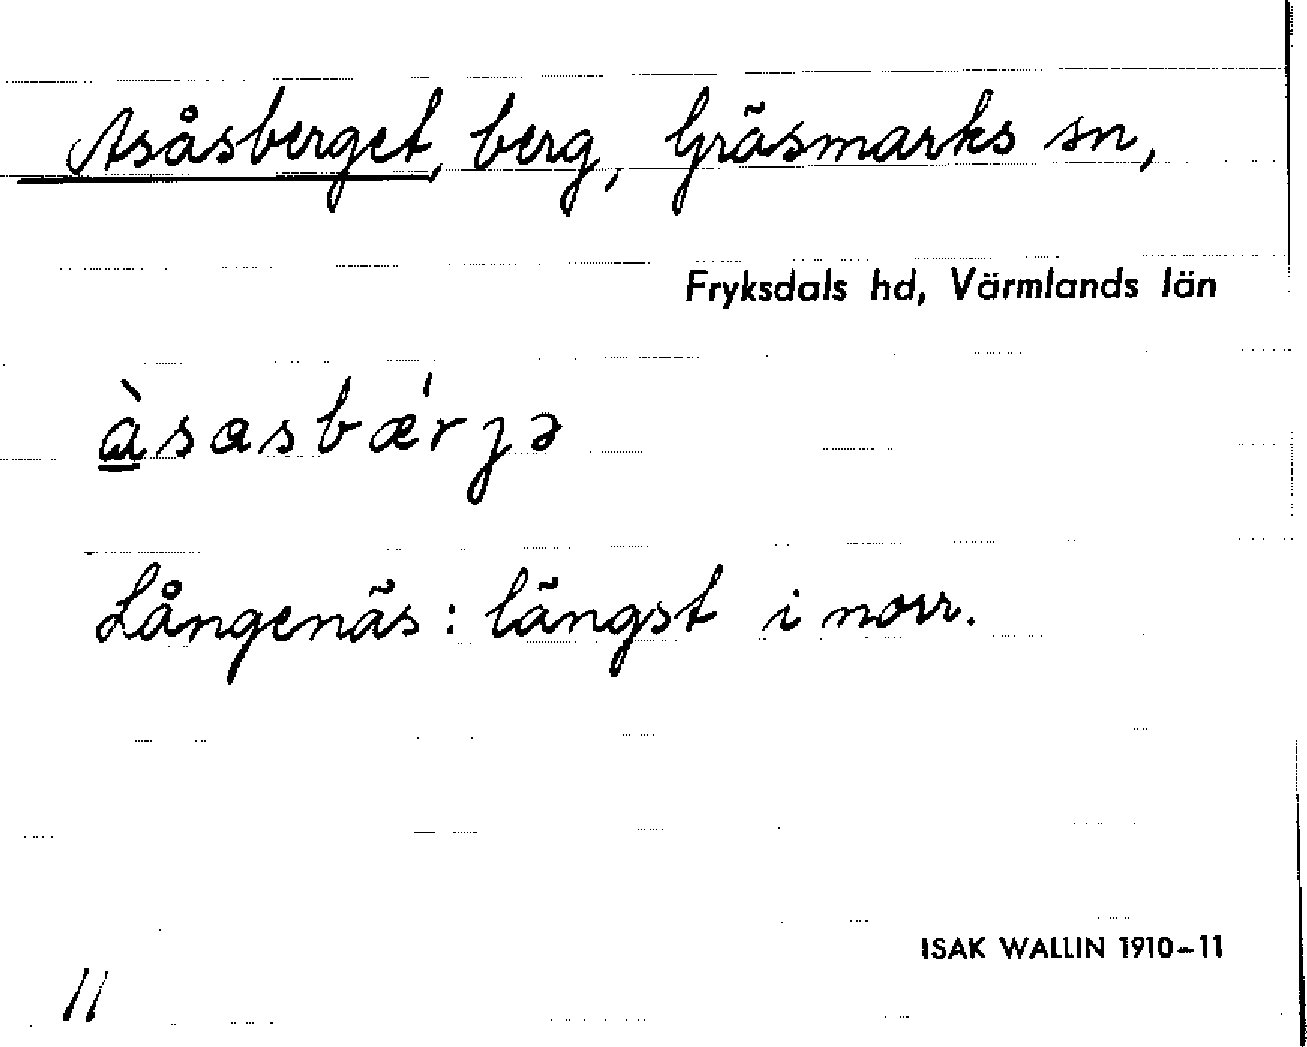 Asåsberget, berg, Gräsmarks sn,
Fryksdals hd, Värmlands län
à̲sasbǽrjə
Långenäs: längst i norr.
ISAK WALLIN 1910–11
11